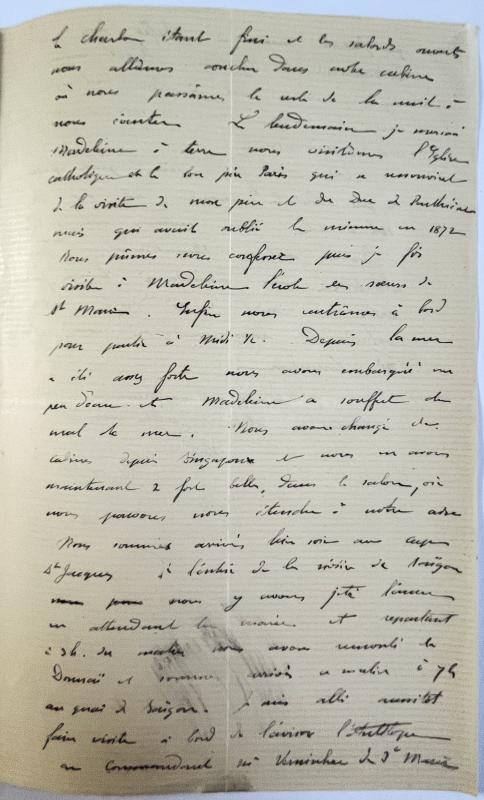 Le charbon étant fini et les sabords ouverts
nous allâmes coucher dans notre cabine
où nous passâmes le reste de la nuit à
nous éventer. Le lendemain je menai
Madeleine à terre nous visitâmes l'Eglise
catholique et le bon père Paris qui se souvenait
de la visite de mon père et du Duc de Penthièvre
mais qui avait oublié la mienne en 1872
Nous pûmes nous confesser puis je fis
visiter à Madeleine l'école des soeurs de
St Maur. Enfin nous rentrâmes à bord
pour partir à Midi ½. Depuis la mer
a été assez forte nous avons embarqué un
peu d'eau et Madeleine a souffert du
mal de mer. Nous avons changé de
cabines depuis Singapore et nous en avons
maintenant 2 fort belles, dans le salon, où
nous pouvons nous étendre à notre aise
Nous sommes arrivés hier soir au cap
St Jacques à l'entrée de la rivière de Saïgon
nous y avons jeté l'ancre
en attendant la marée et repartant
à 3h. du matin nous avons remonté le
Donnaï et sommes arrivés ce matin à 7h
au quai de Saïgon. Je suis allé aussitôt
faire visite à bord de l'aviso l'Antilope
au Commandant de Ste Marie